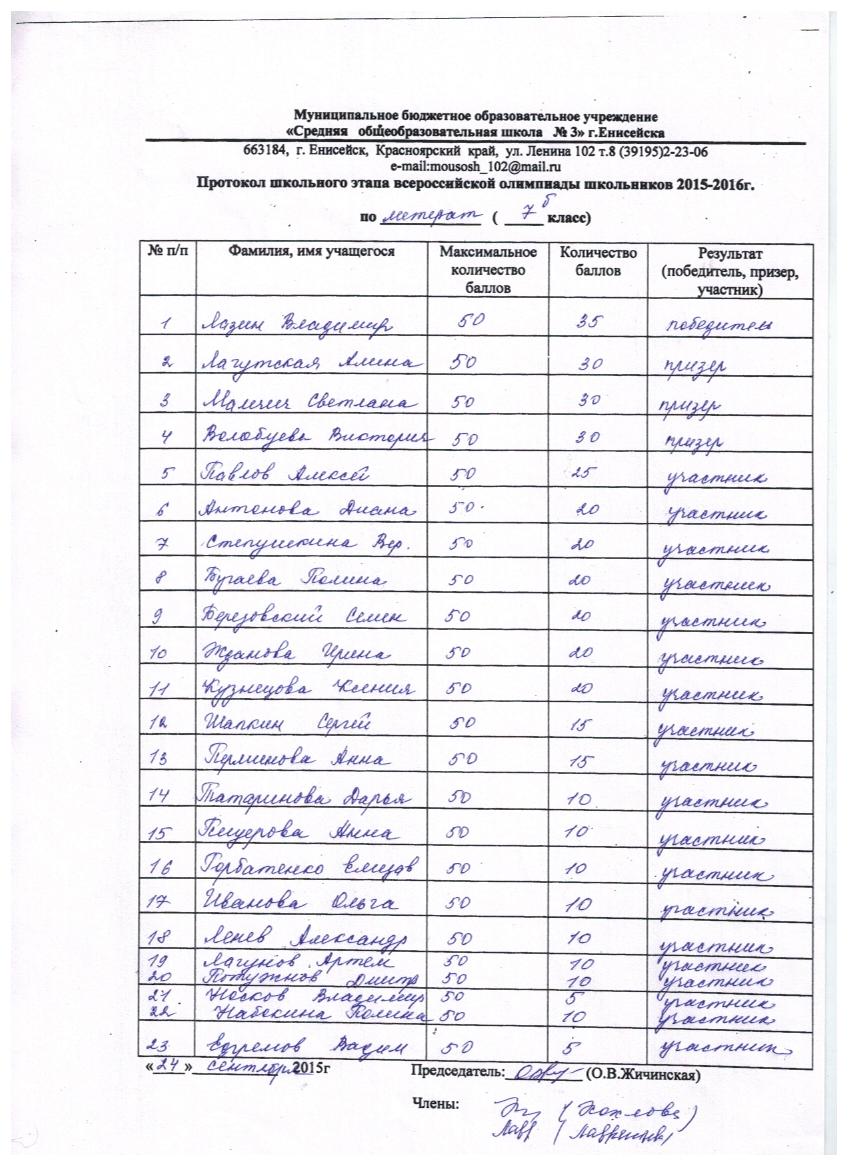 Муниципальное бюджетное образовательное учреждение
«Средняя общеобразовательная школа № 3» г.Енисейска
663184, г. Енисейск, Красноярский край, ул. Ленина 102 т.8 (39195)2-23-06
e-mail:mousosh_102@mail.ru
Протокол школьного этапа всероссийской олимпиады школьников 2015-2016г.
по ( 7 б класс)
№ п/п Фамилия, имя учащегося Максимальное количество баллов Количество баллов Результат (победитель, призер, участник)
1 Лазин Владимир 50 35 победитель
2 Лагутская Алина 50 30 призер
3 Светлана 50 30 призер
4 Волобуева Виктория 50 30 призер
5 Павлов Алексей 50 25 участник
6 Антонова Диана 50 20 участник
7 Степушкина Вер. 50 20 участник
8 Бугаева Полина 50 20 участник
9 Березовский Семен 50 20 участник
10 Жданова Ирина 50 20 участник
11 Кузнецова Ксения 50 20 участник
12 Шапкин Сергей 50 15 участник
13 Анна 50 15 участник
14 Татаринова Дарья 50 10 участник
15 Анна 50 10 участник
16 Горбатенко Елизав 50 10 участник
17 Иванова Ольга 50 10 участник
18 Ленев Александр 50 10 участник
19 Лагунов Артем 50 10 участник
20 Потужнов Дмитр 50 10 участник
21 Носков Владимир 50 5 участник
22 Набокина Полина 50 10 участник
23 Вадим 50 5 участник
« 24 » сентября 2015г Председатель: (О.В.Жичинская)
Члены: (Хохлова)